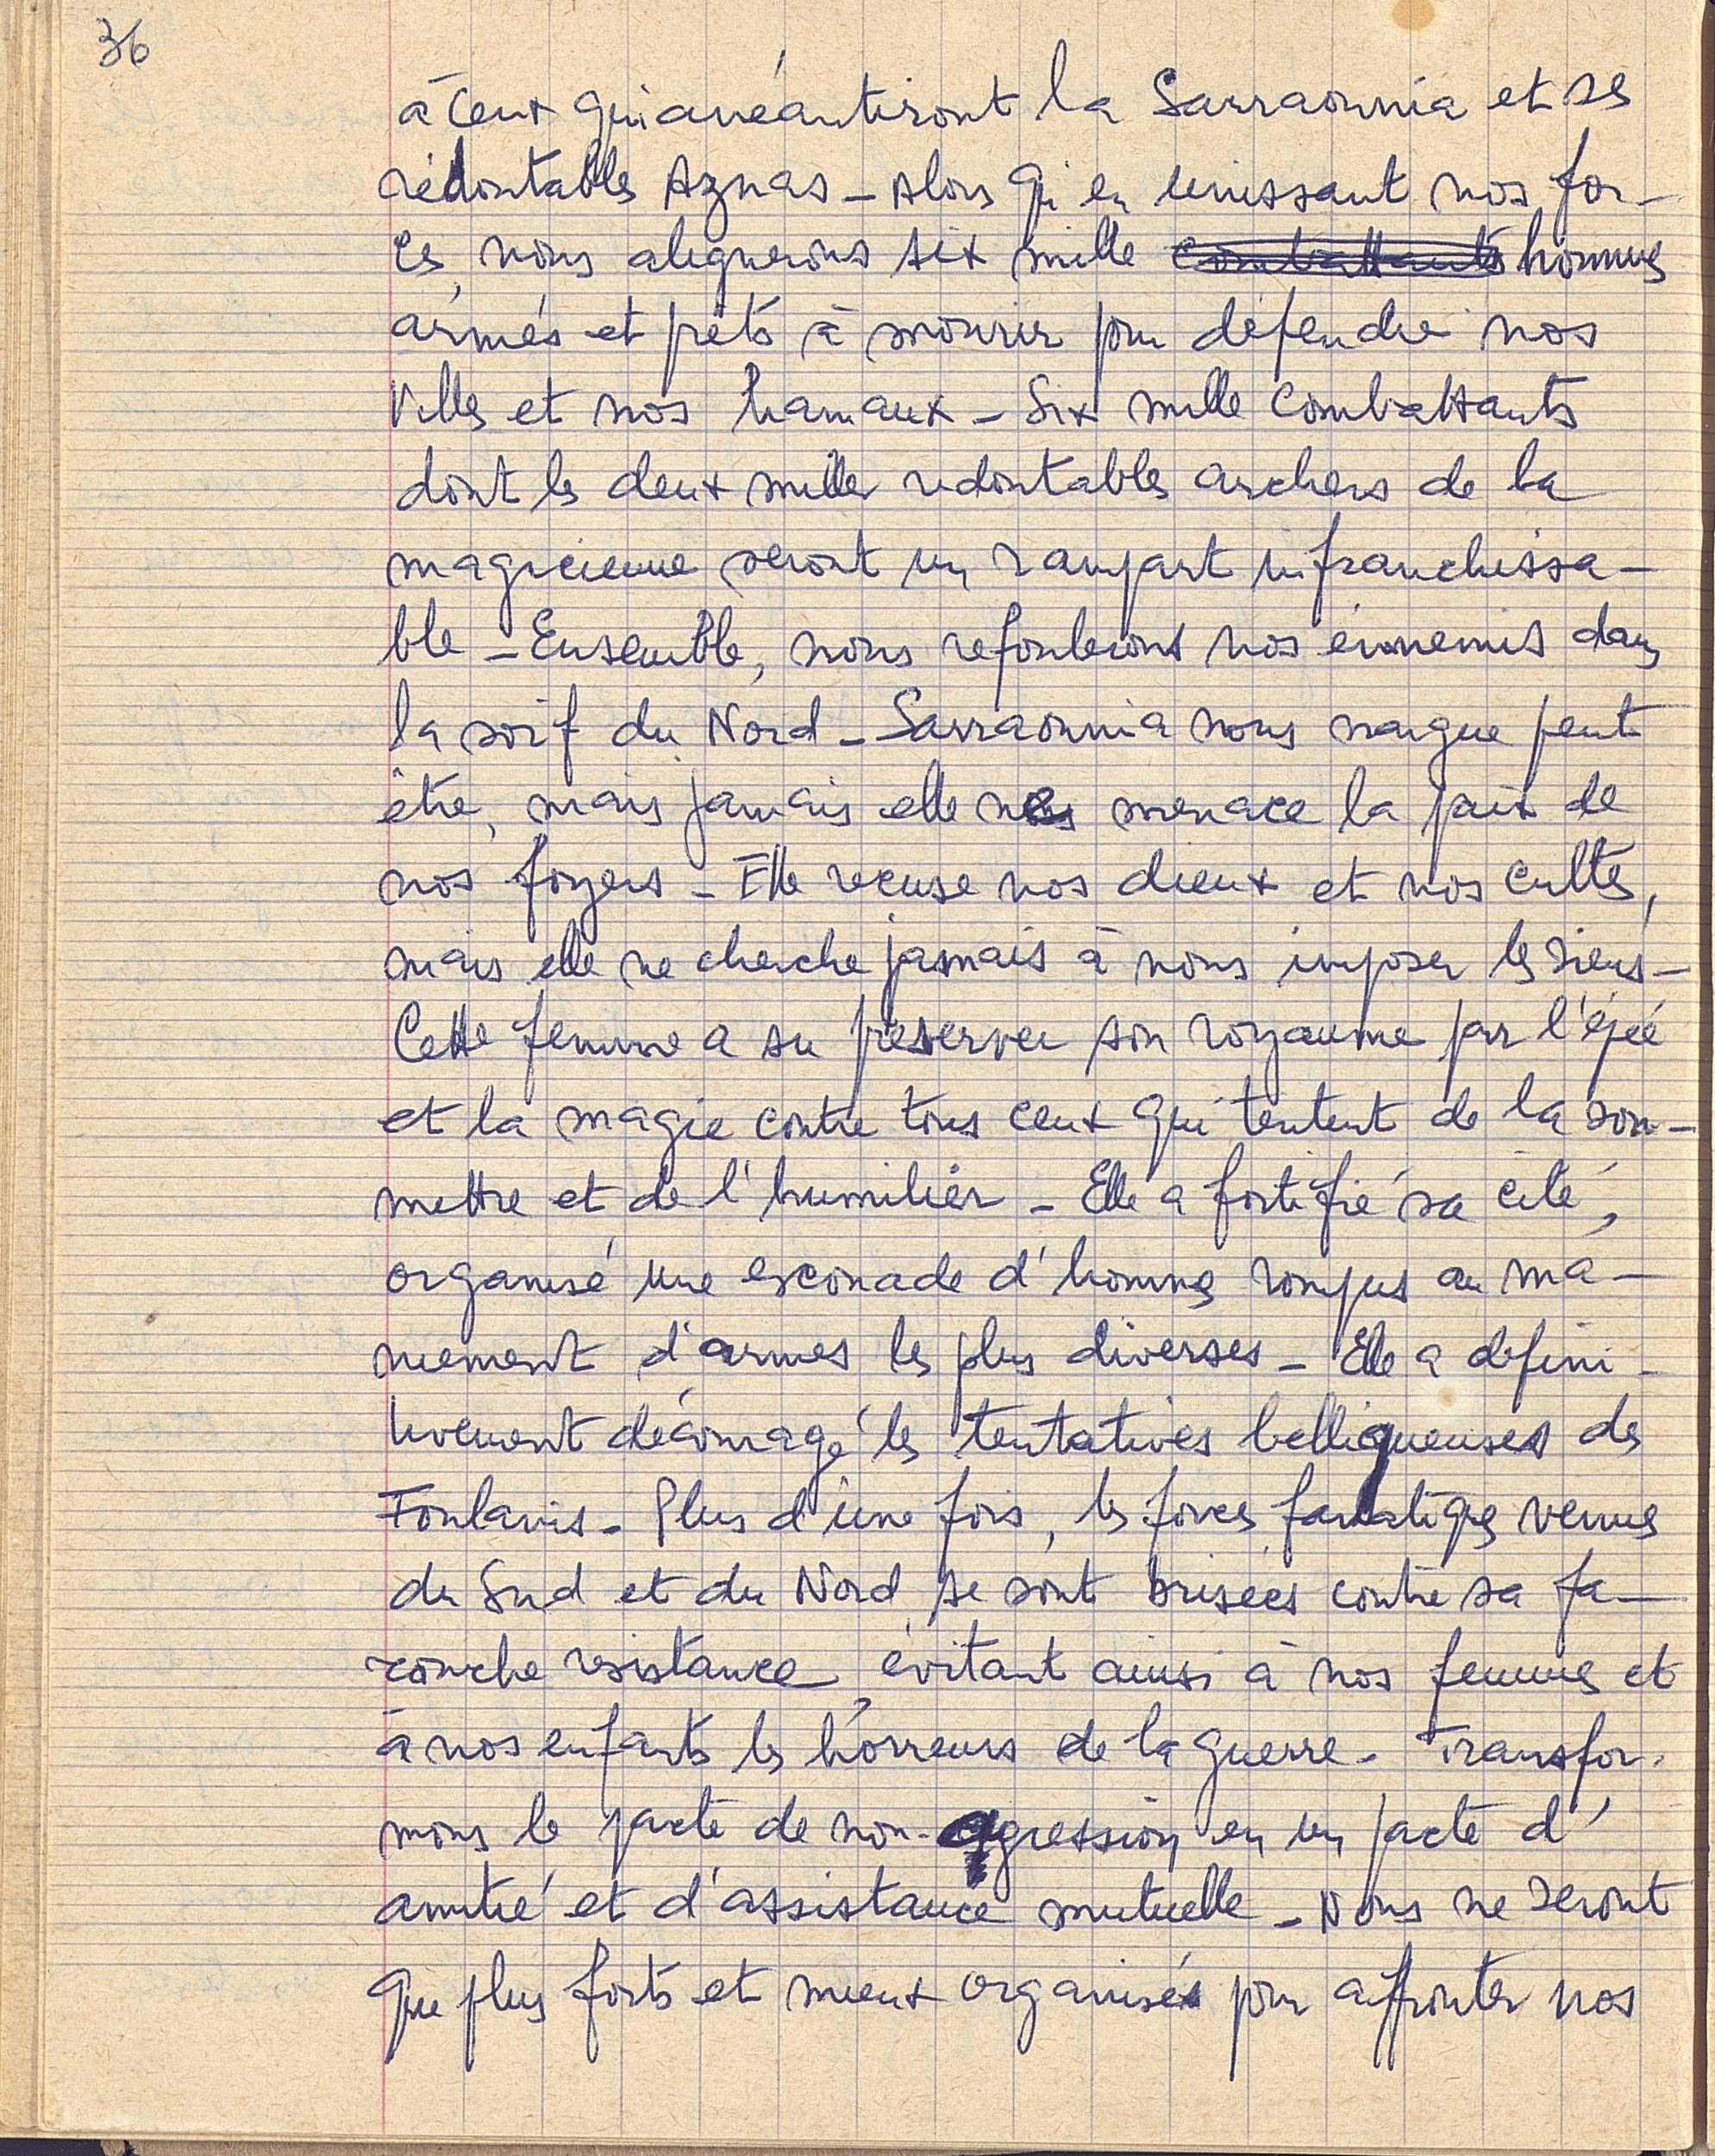 36
à ceux qui anéantiront la Sarraounia et ses
rédoutables Aznas - Alors qu'en unissant nos for-
ces, nous alignerons six mille combattants hommes
armés et prêts à mourir pour défendre nos
villes et nos hamaux - Six mille combattants
dont les deux milles redoutables archers de la
magicienne seront un rampart infranchissa-
ble - Ensemble, nous refoulerons nos énnemis dans
la soif du Nord - Sarraounia nous nargue peut
être, mais jamais elle ne menace la paix de
nos foyers - Elle recuse nos dieux et nos cultes,
mais elle ne cherche jamais à nous imposer les siens -
Cette femme a su préserver son royaume par l'épée
et la magie contre tous ceux qui tentent de la sou-
mettre et de l'humilier - Elle a fortifié sa cité,
organisé une esconade d'hommes rompus au ma-
niement d'armes les plus diverses - Elle a defini-
tivement découragé les tentatives belliqueuses des
Foulanis - Plus d'une fois, les forces fanatiques venues
du Sud et du Nord se sont brisées contre sa fa-
rouche resistance, évitant ainsi à nos femmes et
à nos enfants les horreurs de la guerre - Transfor-
mons le pacte de non-agression en un pacte d'
amitié et d'assistance mutuelle - Nous ne seront
que plus forts et mieux organisés pour affronter nos